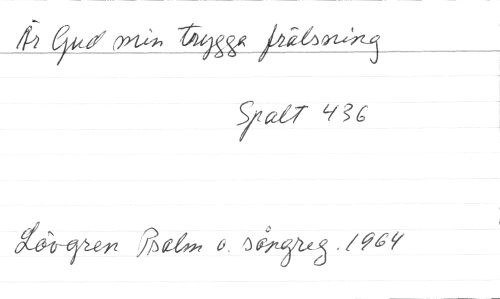 Är Gud min trygga frälsning
Spalt 436
Lövgren Psalm o. sångreg. 1964